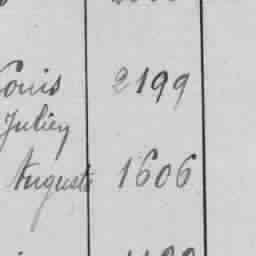 Louis 2199
Julien
Auguste 1606